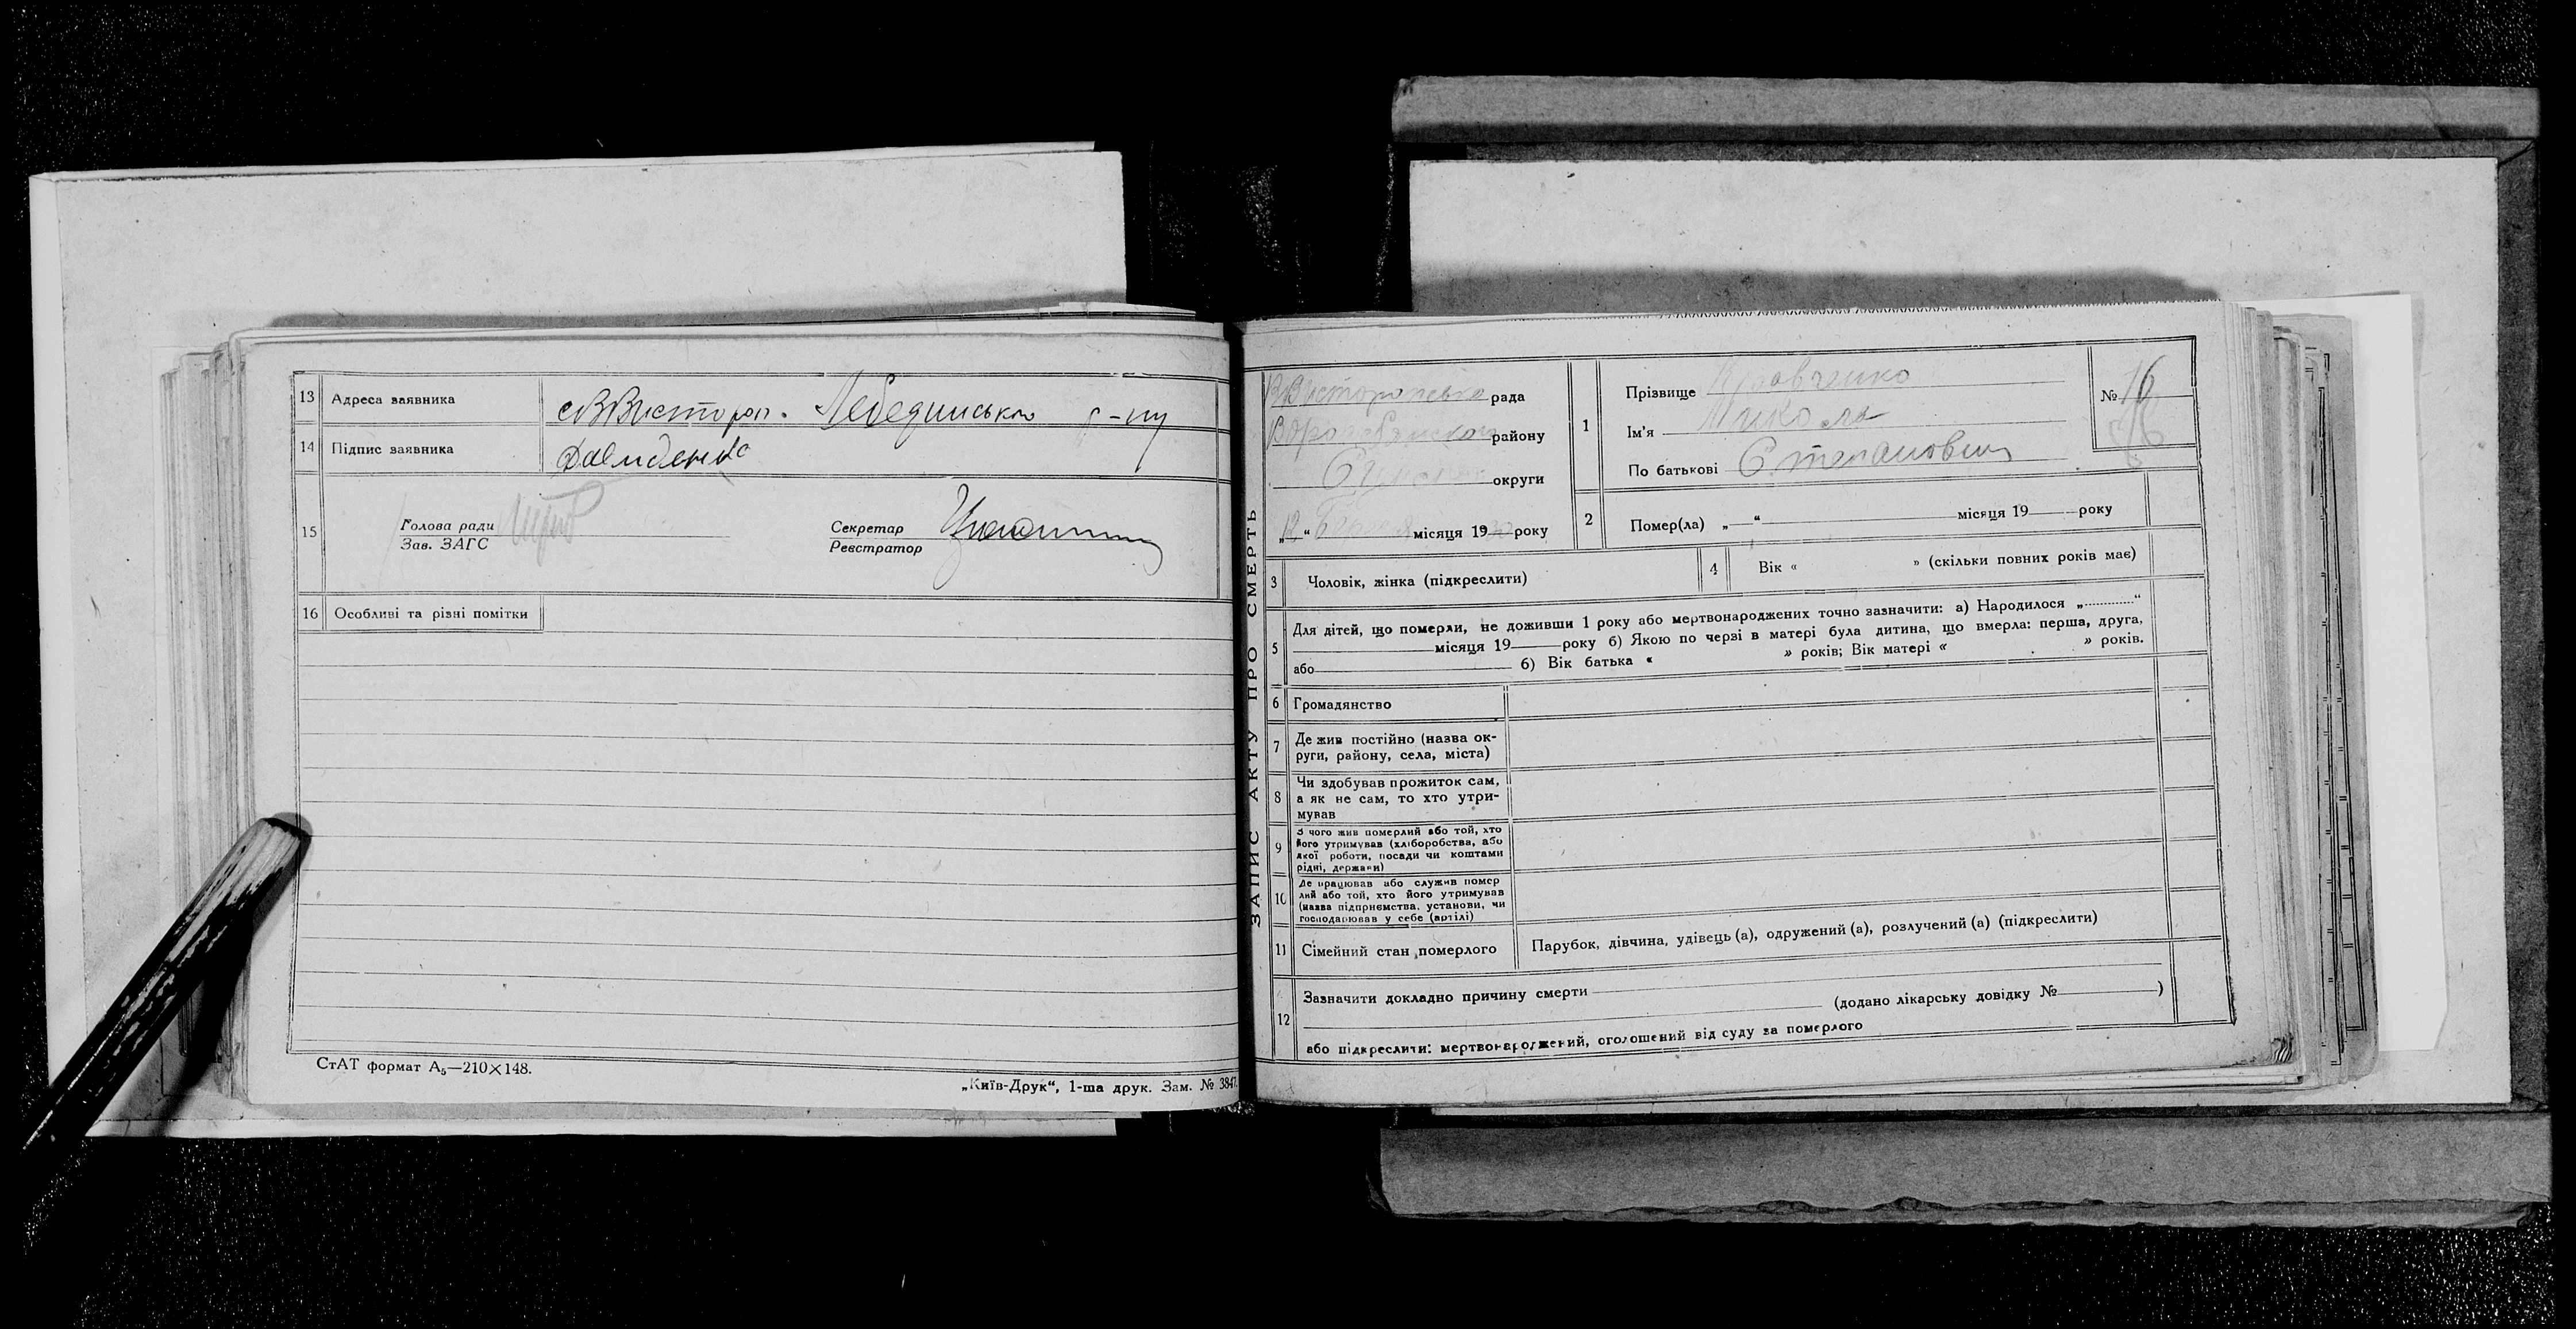 13 Адреса заявника
с В Вистороп. Лебединського р-ну
14 Підпис заявника
Давиденко
15 Голова ради
Зав. ЗАГС
Секретар
Реєстратор
16 Особливі та різні помітки
СтАТ формат А₅—210×148.
„Київ-Друк“, 1-ша друк. Зам. № 3847.
ЗАПИС АКТУ ПРО СМЕРТЬ
рада
району
округи
„12“ місяця 19 року
1 Прізвище Кравченко
Ім'я Микола
По батькові Степанович
№ 16
2 Помер(ла) „ “ місяця 19 року
3 Чоловік, жінка (підкреслити)
4 Вік « » (скільки повних років має)
5 Для дітей, що померли, не доживши 1 року або мертвонароджених точно зазначити: а) Народилося „ “
місяця 19 року б) Якою по черзі в матері була дитина, що вмерла: перша, друга,
або б) Вік батька « » років; Вік матері « » років.
6 Громадянство
7 Де жив постійно (назва ок-
руги, району, села, міста)
8 Чи здобував прожиток сам,
а як не сам, то хто утри-
мував
9 З чого жив померлий або той, хто
його утримував (хліборобства, або
якої роботи, посади чи коштами
рідні, держави)
10 Де працював або служив помер
лий або той, хто його утримував
(назва підприємства, установи, чи
господарював у себе (артілі)
11 Сімейний стан померлого
Парубок, дівчина, удівець (а), одружений (а), розлучений (а) (підкреслити)
12 Зазначити докладно причину смерти
(додано лікарську довідку № )
або підкреслити: мертвонароджений, оголошений від суду за померлого